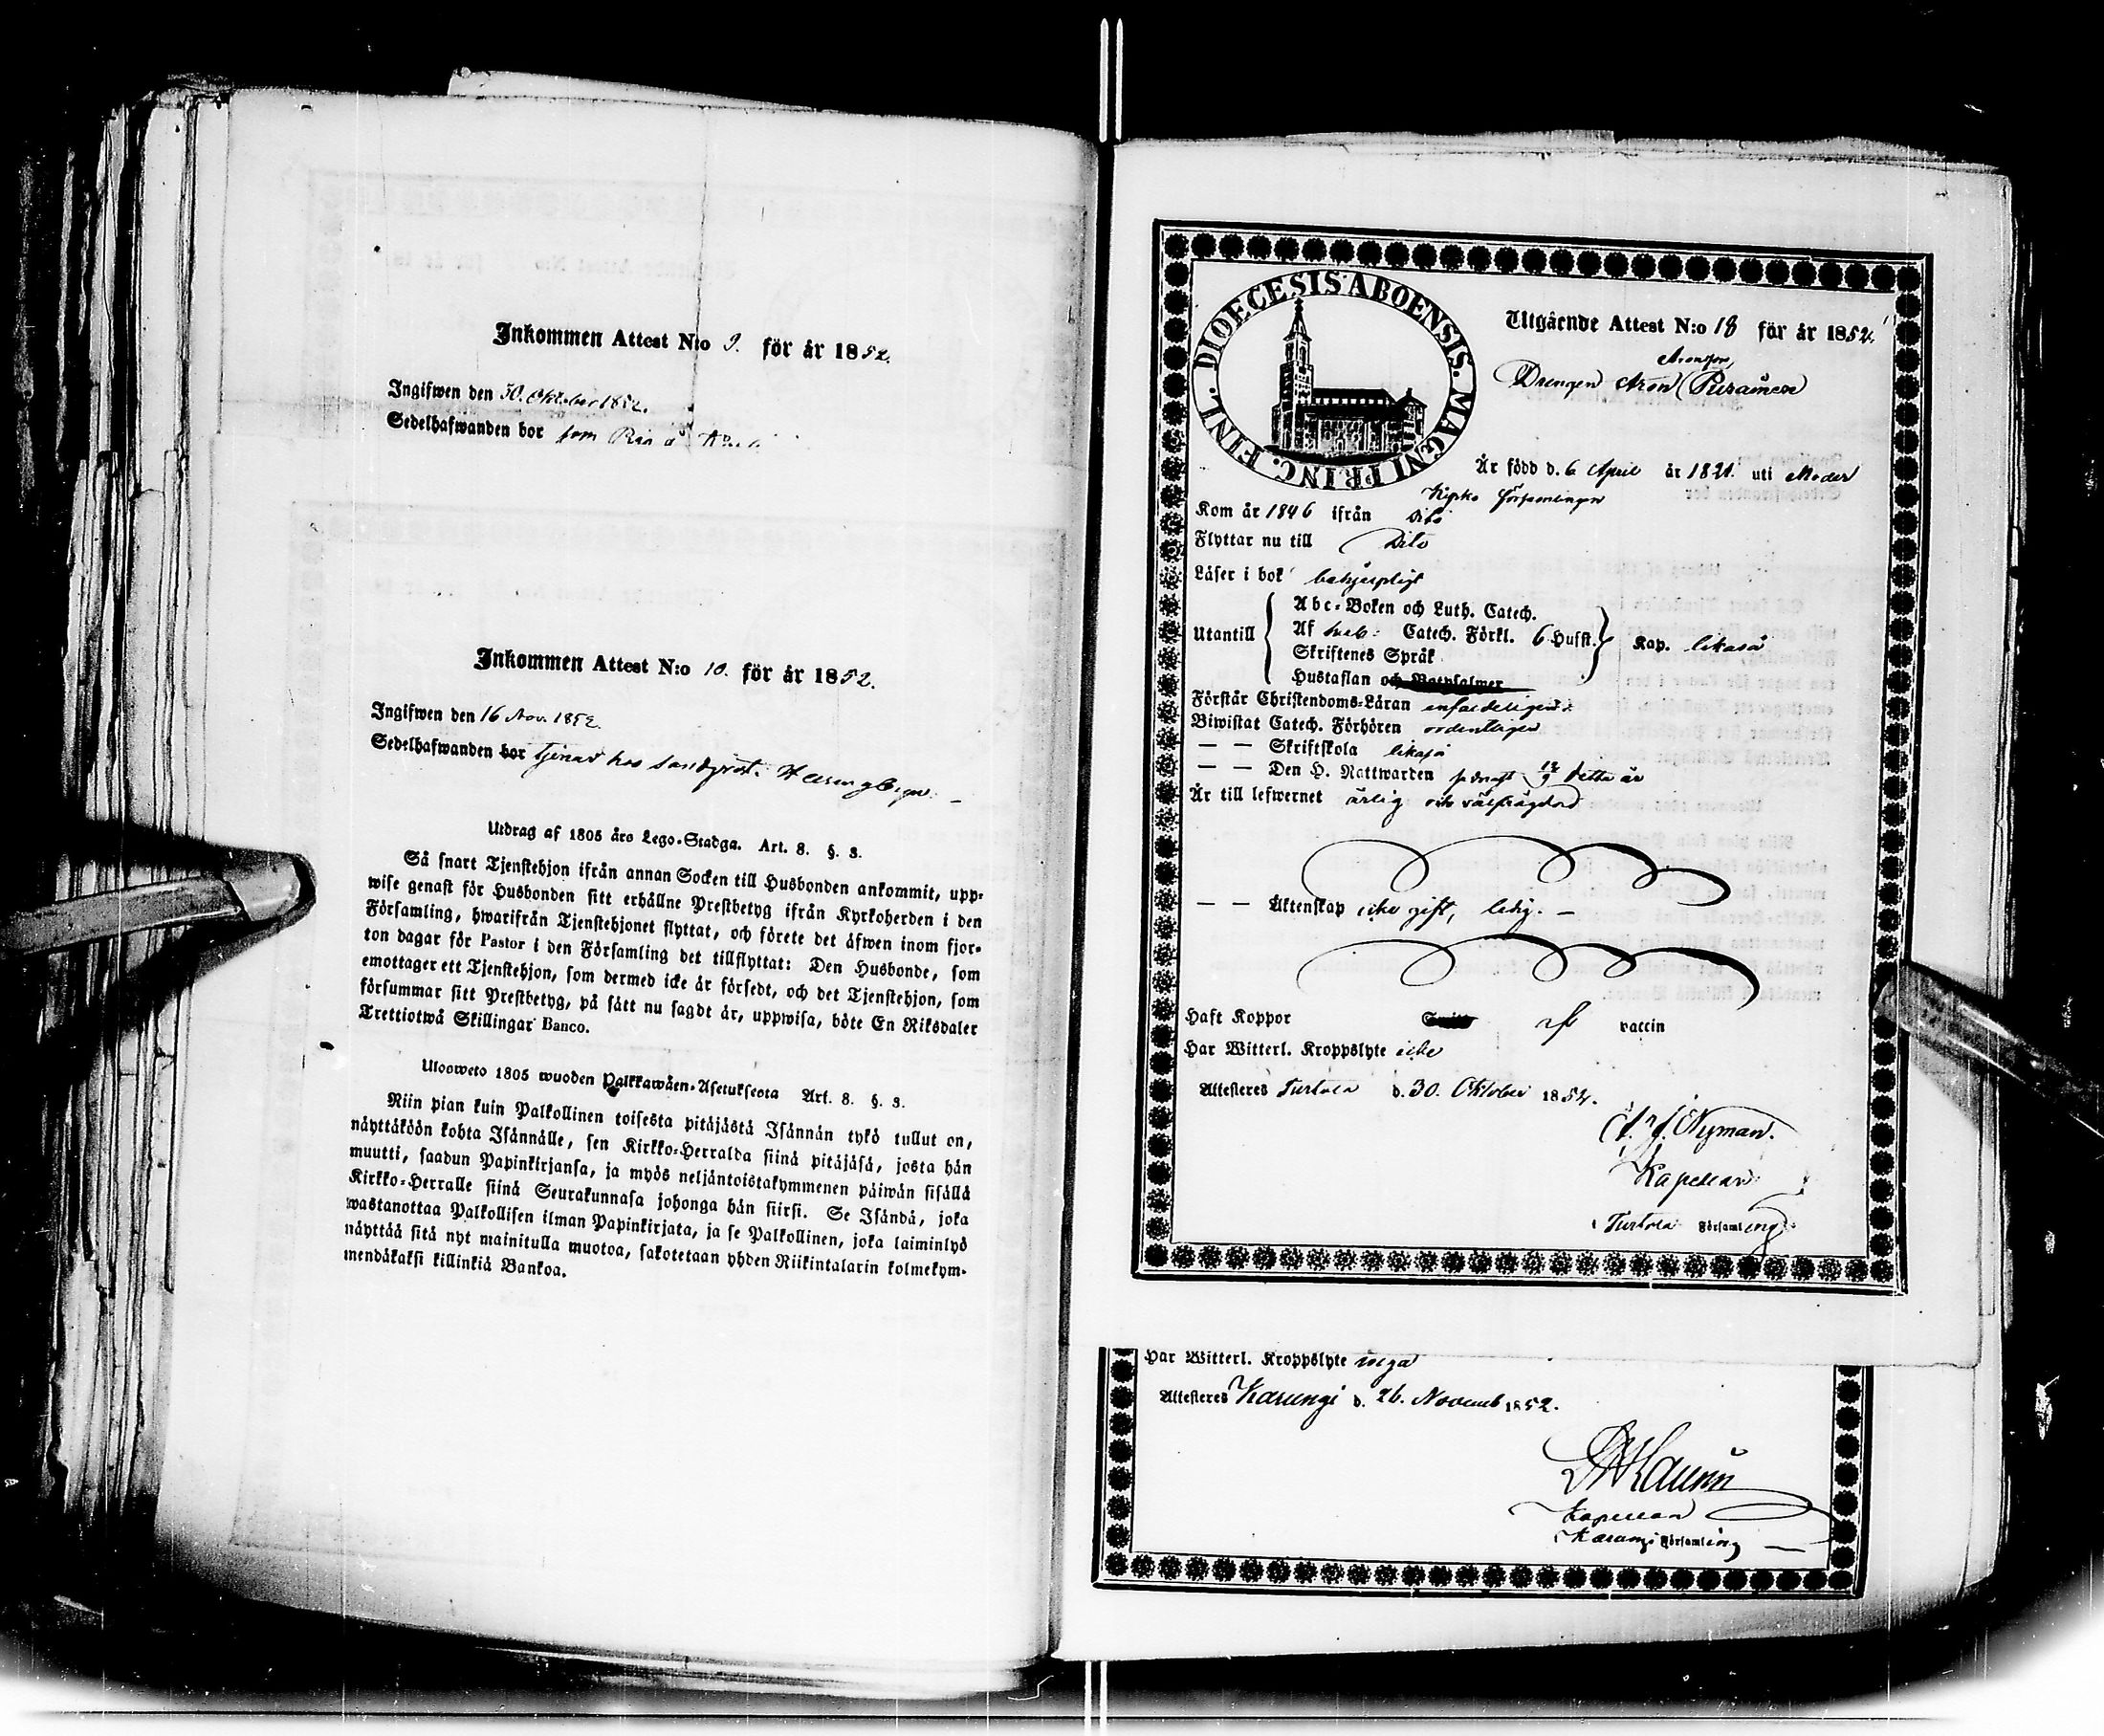 Inkommen Attest N:o 9. för år 1852.
Ingifwen den 30. Oktober 1852.
Sedelhafwanden bor som
Inkommen Attest N:o 10. för år 1852.
Ingifwen den 16 Nov. 1852.
Sedelhafwanden bor tjenar hos
Utdrag af 1805 års Lego-Stadga. Art. 8. §. 3.
Så snart Tjenstehjon ifrån annan Socken till Husbonden ankommit, upp-
wise genast för Husbonden sitt erhållne Prestbetyg ifrån Kyrkoherden i den
Församling, hwarifrån Tjenstehjonet flyttat, och förete det äfwen inom fjor-
ton dagar för Pastor i den Församling det tillflyttat: Den Husbonde, som
emottager ett Tjenstehjon, som dermed icke är försedt, och det Tjenstehjon, som
försummar sitt Prestbetyg, på sätt nu sagdt är, uppwisa, böte En Riksdaler
Trettiotwå Skillingar Banco.
Ulosweto 1805 wuoden Palkkawäen-Asetuksesta Art. 8. §. 3.
Niin pian kuin Palkollinen toisesta pitäjästä Isännän tykö tullut on,
näyttäköön kohta Isännälle, sen Kirkko-Herralda siinä pitäjäsä, josta hän
muutti, saadun Papinkirjansa, ja myös neljäntoistakymmenen päiwän sisällä
Kirkko-Herralle siinä Seurakunnasa johonga hän siirsi. Se Isändä, joka
wastanottaa Palkollisen ilman Papinkirjata, ja se Palkollinen, joka laiminlyö
näyttää sitä nyt mainitulla muotoa, sakotetaan yhden Riikintalarin kolmekym-
mendäkaksi killinkiä Bankoa.
DIOECESIS ABOENSIS. MAGNI PRINC. FINL.
Utgående Attest N:o 18 för år 1852.
Aronsson
Drengen Aron
Är född d. 6 April år 1821. uti Moder
Kyrko församlingen
Kom år 1846 ifrån Dito
Flyttar nu till Dito
Läser i bok behjelpligt
Abc-Boken och Luth. Catech.
Utantill Af Sveb: Catech. Förkl. 6 Hufst. Kap. likaså
Skriftenes Språk
Hustaflan och Botpsalmer
Förstår Christendoms-Läran enfaldeligen
Biwistat Catech. Förhören ordentligen
— — Skriftskola likaså
— — Den H. Nattwarden sednast 12/9 detta år
Är till lefwernet ärlig och välfrägdad
— — Äktenskap icke gift, ledig. —
Haft Koppor af vaccin
Har Witterl. Kroppslyte icke
Attesteres Turtola d. 30. Oktober 1852.
Nyman.
Kapellan
Turtola Församling
Har Witterl. Kroppslyte inga
Attesteres Karungi d. 26. Novemb 1852.
Kapellan
Karungi Församling —